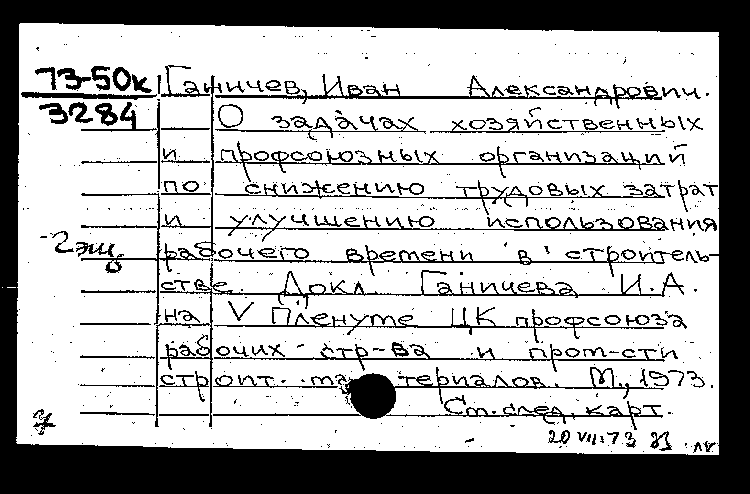 73-50к
3284
Ганичев, Иван Александрович.
О задачах хозяйственных
и профсоюзных организаций
по снижению трудовых затрат
и улучшению использования
рабочего времени в строитель-
стве. Докл. Ганичева И.А.
на V Пленуме ЦК профсоюза
рабочих стр-ва и пром-сти
строит. материалов. М., 1973.
См. след. карт.
2 эк
20 VII.73